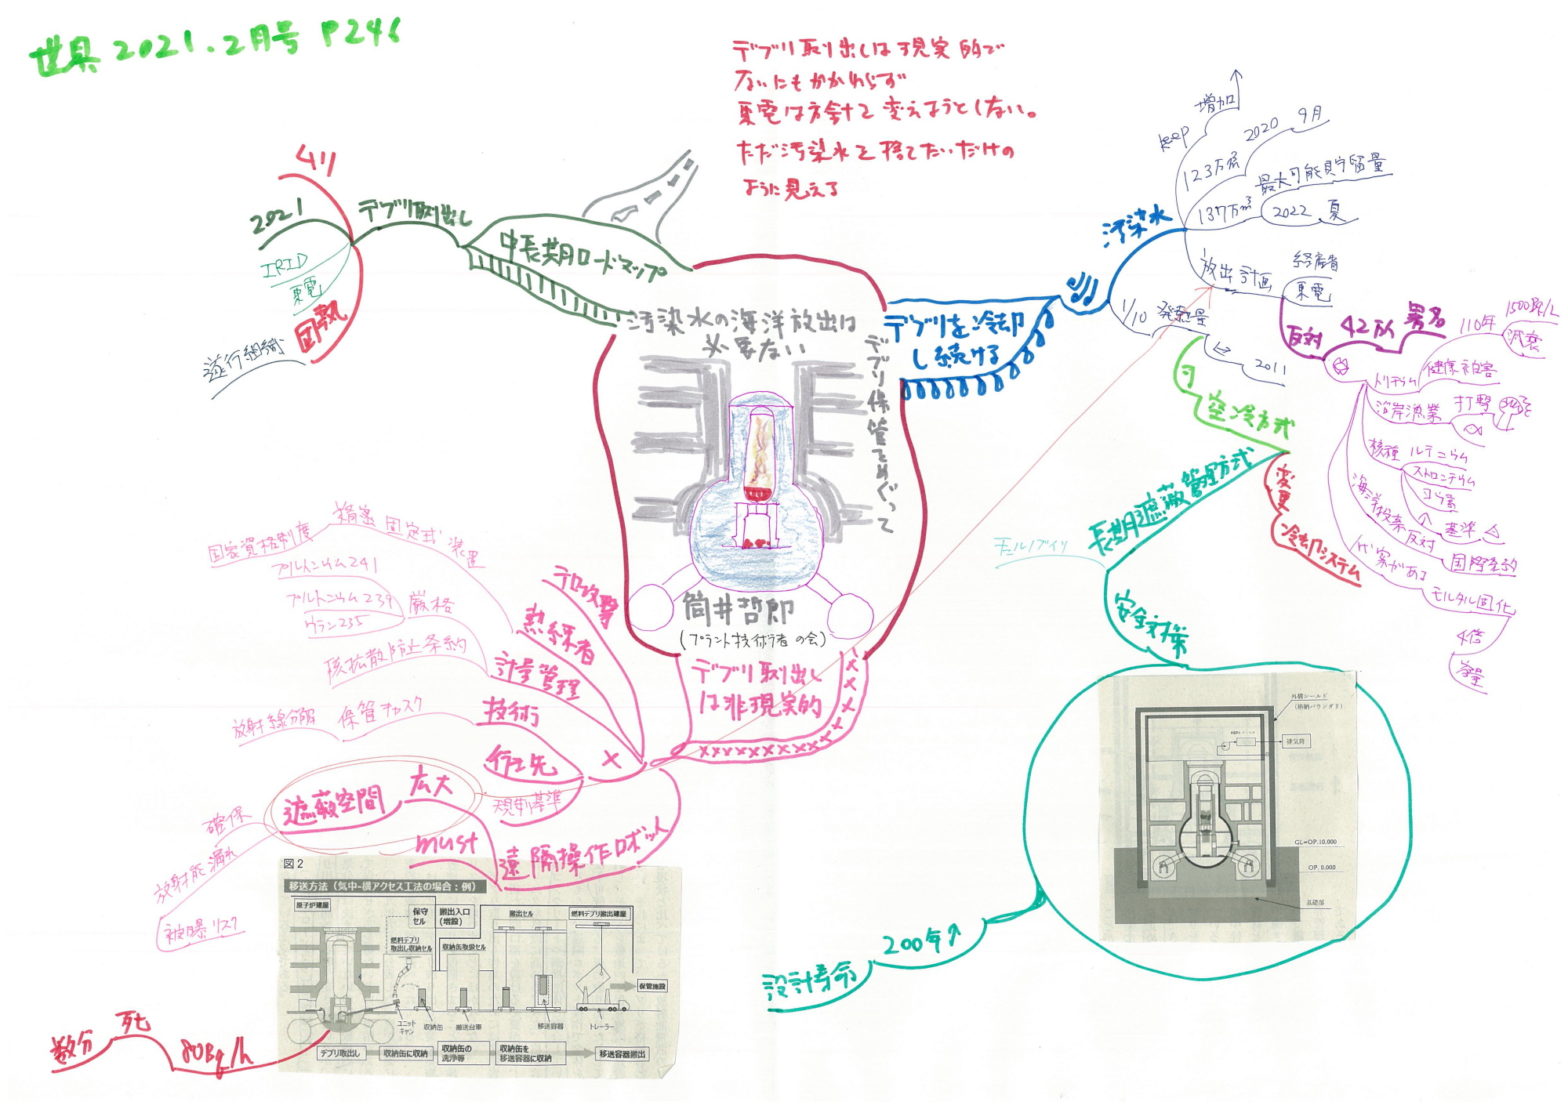 世界 2021.2月号 P246
デブリ取り出しは現実的で
ないにもかかわらず
東電は方針を変えようとしない。
ただ汚染水を捨てたいだけの
ように見える
汚染水の海洋放出は
必要ない
デブリ保管をめぐって
筒井哲郎
(プラント技術者の会)
中長期ロードマップ
デブリ取り出し
切り
2021
IRID
東電
国
遂行組織
デブリを冷却
し続ける
汚染水
keep
増加
123万㎥
2020 9月
137万㎥
最大可能貯留量
2022 夏
放出計画
経産省
東電
反対
42万人
署名
トリチウム
110年
1500Bq/L
減衰
健康被害
沿岸漁業
打撃
核種
ルテニウム
ストロンチウム
ヨウ素
基準
海洋投棄反対
国際条約
代案がある
モルタル固化
4倍
容量
1/10
発熱量
2011
可
空冷方式
変更
冷却システム
長期遮蔽管理方式
チェルノブイリ
安全対策
設計寿命
200年
外構シールド
(格納バウンダリ)
排気筒
GL=OP.10,000
OP. 0.000
基礎部
デブリ取出し
は非現実的
テロ攻撃
熟練者
精密
固定式
装置
国家資格制度
計量管理
厳格
プルトニウム241
プルトニウム239
ウラン235
核拡散防止条約
技術
保管キャスク
放射線分解
×
行き先
規制基準
遠隔操作ロボット
must
広大
遮蔽空間
確保
放射能漏れ
被曝リスク
図2
移送方法（気中-横アクセス工法の場合：例）
原子炉建屋
保守
セル
搬出入口
(増設)
搬出セル
燃料デブリ搬出建屋
燃料デブリ
取出し収納セル
収納缶取扱セル
保管施設
ユニット
キャン
収納缶
搬送台車
移送容器
トレーラー
デブリ取出し
収納缶に収納
収納缶の
洗浄等
収納缶を
移送容器に収納
移送容器搬出
数分
死